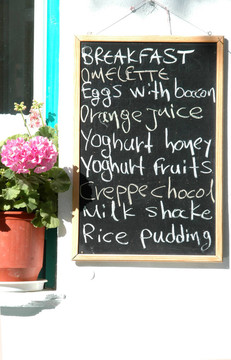 BREAKFAST
OMELETTE
Eggs with bacon
Orange juice
Yoghurt honey
Yoghurt fruits
Creppe chocol
Milk shake
Rice pudding